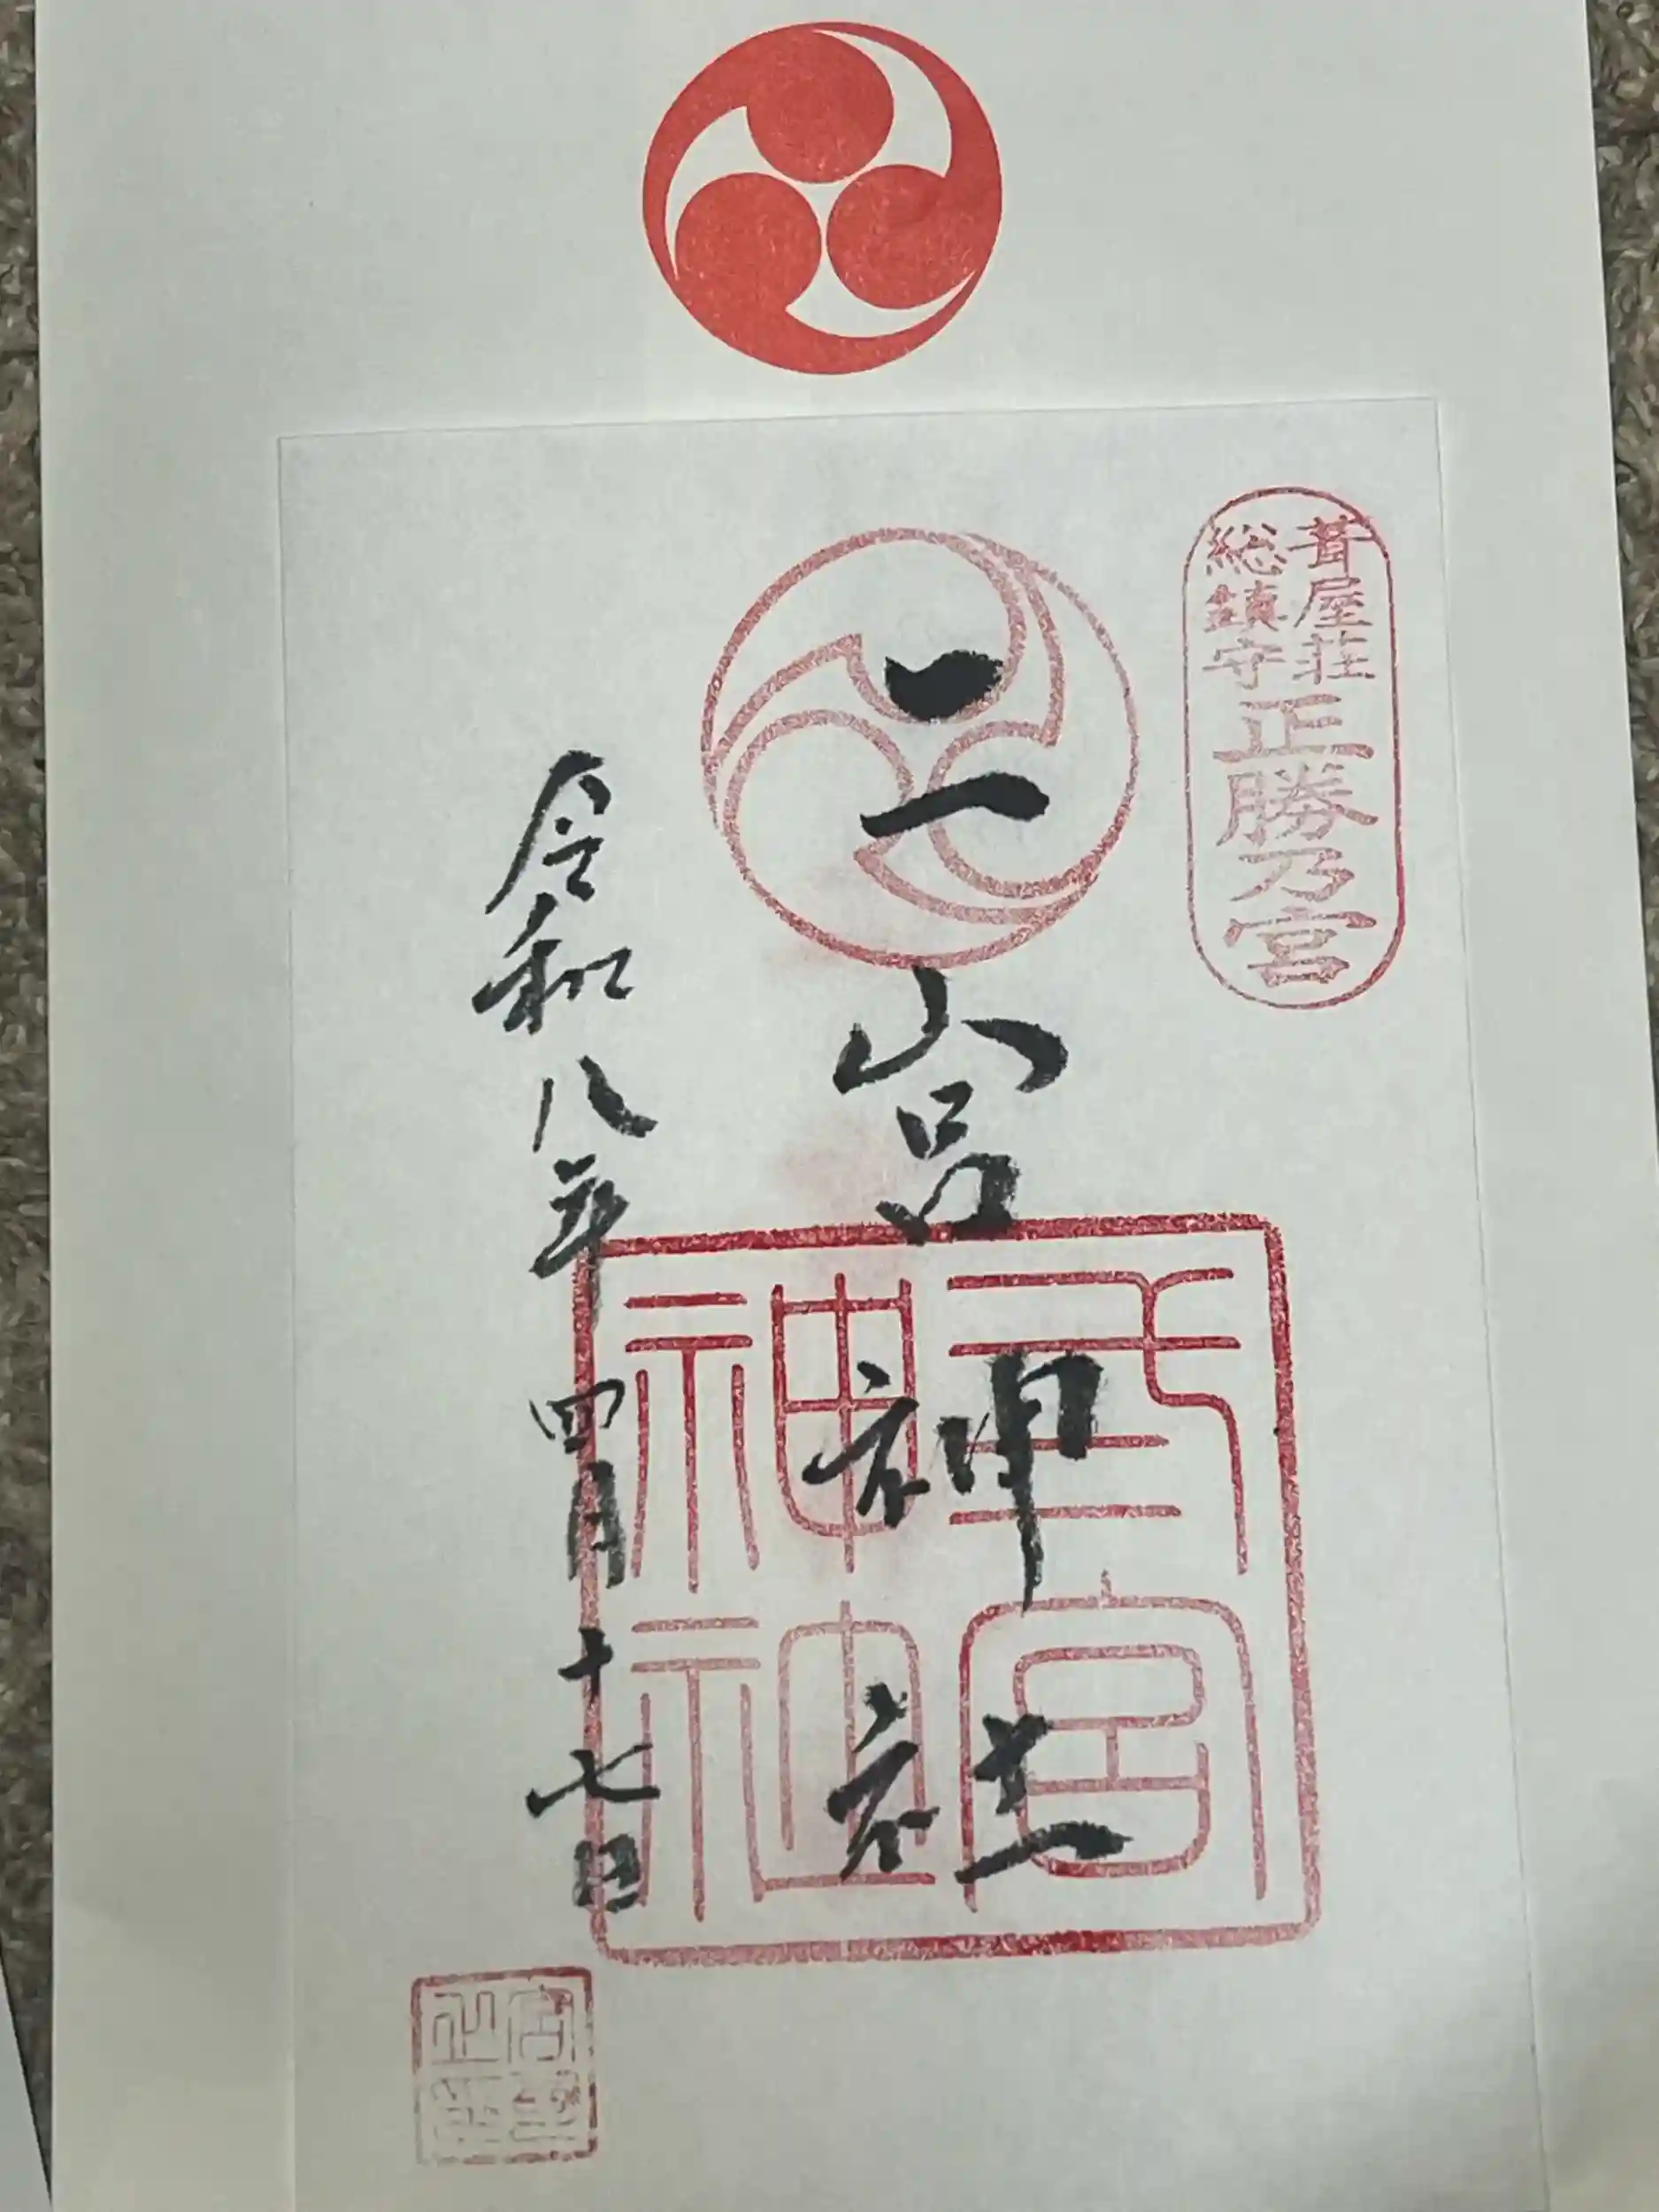 葺屋荘
総鎮守
正勝乃宮
二宮神社
弍宮神社
令和八年四月十七日